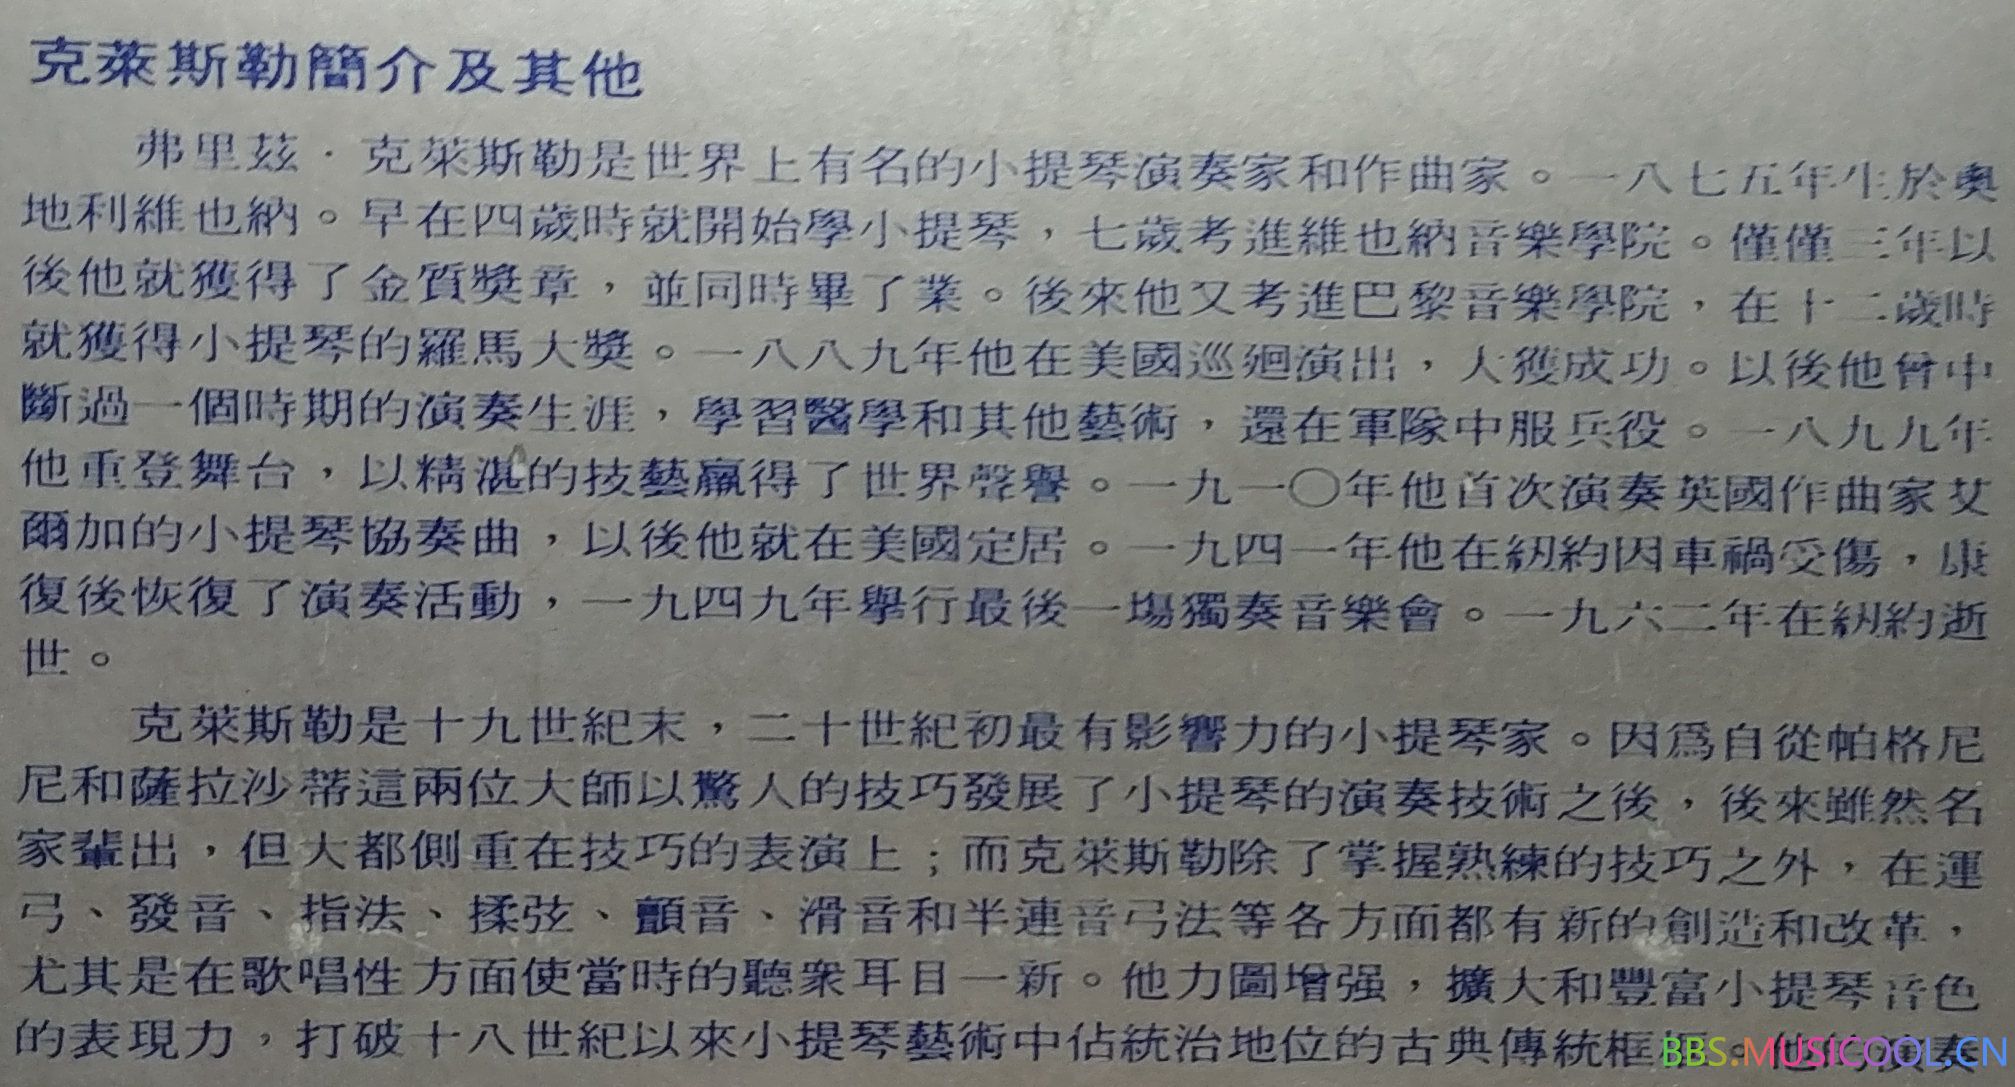 克萊斯勒簡介及其他
弗里茲·克萊斯勒是世界上有名的小提琴演奏家和作曲家。一八七五年生於奧
地利維也納。早在四歲時就開始學小提琴，七歲考進維也納音樂學院。僅僅三年以
後他就獲得了金質獎章，並同時畢了業。後來他又考進巴黎音樂學院，在十二歲時
就獲得小提琴的羅馬大獎。一八八九年他在美國巡廻演出，大獲成功。以後他曾中
斷過一個時期的演奏生涯，學習醫學和其他藝術，還在軍隊中服兵役。一八九九年
他重登舞台，以精湛的技藝贏得了世界聲譽。一九一〇年他首次演奏英國作曲家艾
爾加的小提琴協奏曲，以後他就在美國定居。一九四一年他在紐約因車禍受傷，康
復後恢復了演奏活動，一九四九年舉行最後一場獨奏音樂會。一九六二年在紐約逝
世。
克萊斯勒是十九世紀末，二十世紀初最有影響力的小提琴家。因爲自從帕格尼
尼和薩拉沙蒂這兩位大師以驚人的技巧發展了小提琴的演奏技術之後，後來雖然名
家輩出，但大都側重在技巧的表演上；而克萊斯勒除了掌握熟練的技巧之外，在運
弓、發音、指法、揉弦、顫音、滑音和半連音弓法等各方面都有新的創造和改革，
尤其是在歌唱性方面使當時的聽衆耳目一新。他力圖增强，擴大和豐富小提琴音色
的表現力，打破十八世紀以來小提琴藝術中佔統治地位的古典傳統框框。他的演奏
BBS.MUSICOOL.CN